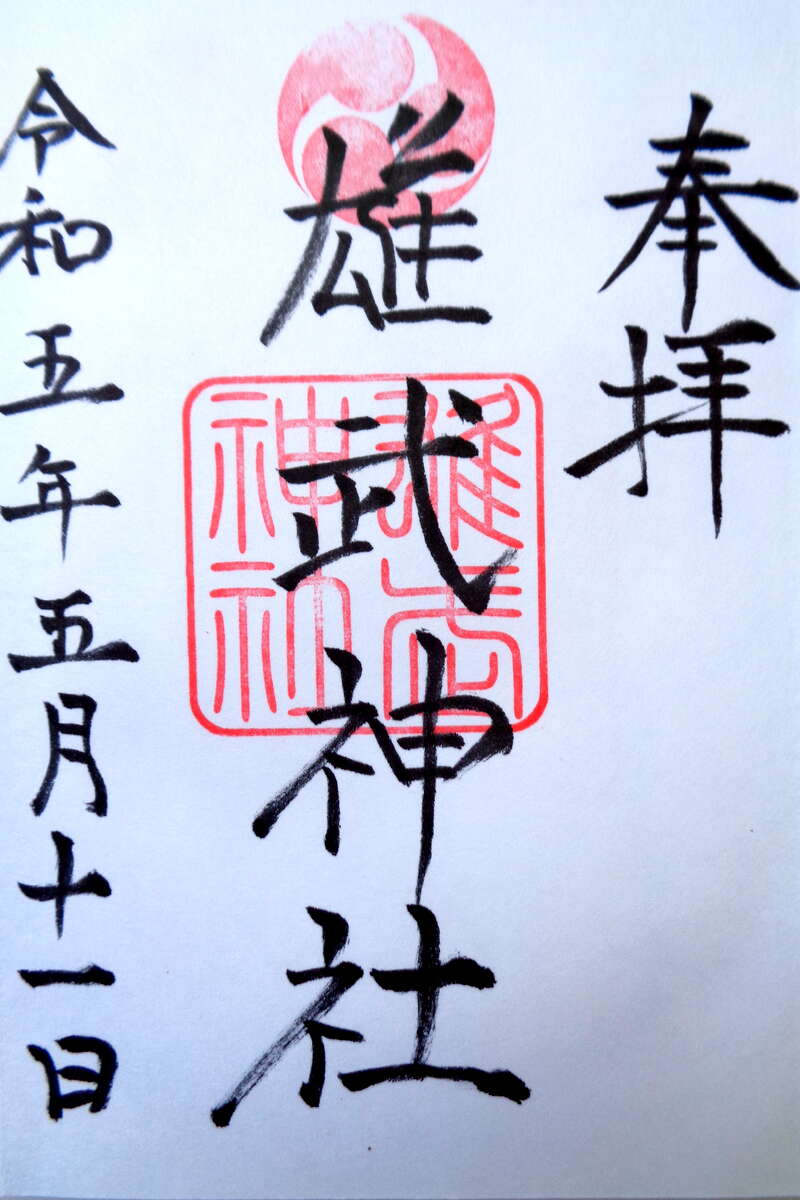 奉拝
雄武神社
雄武
神社
令和五年五月十一日